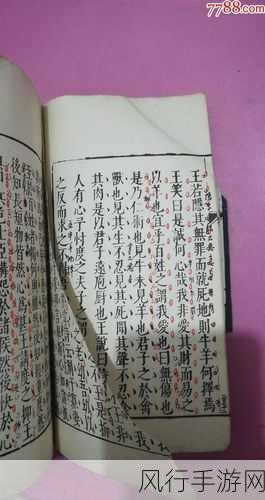 7788.com
王若隱其無罪而就死地則牛羊何擇焉
王笑曰是誠何心哉我非愛其財而易之
以羊也宜乎百姓之謂我愛也曰無傷也
是乃仁術也見牛未見羊也君子之於禽
獸也見其生不忍見其死聞其聲不忍
其肉是以君子遠庖厨也王說曰
人有心予忖度之夫子之
之反而求之不
後知短物皆然心爲甚王請度之抑王
然後快於心
风行手游网